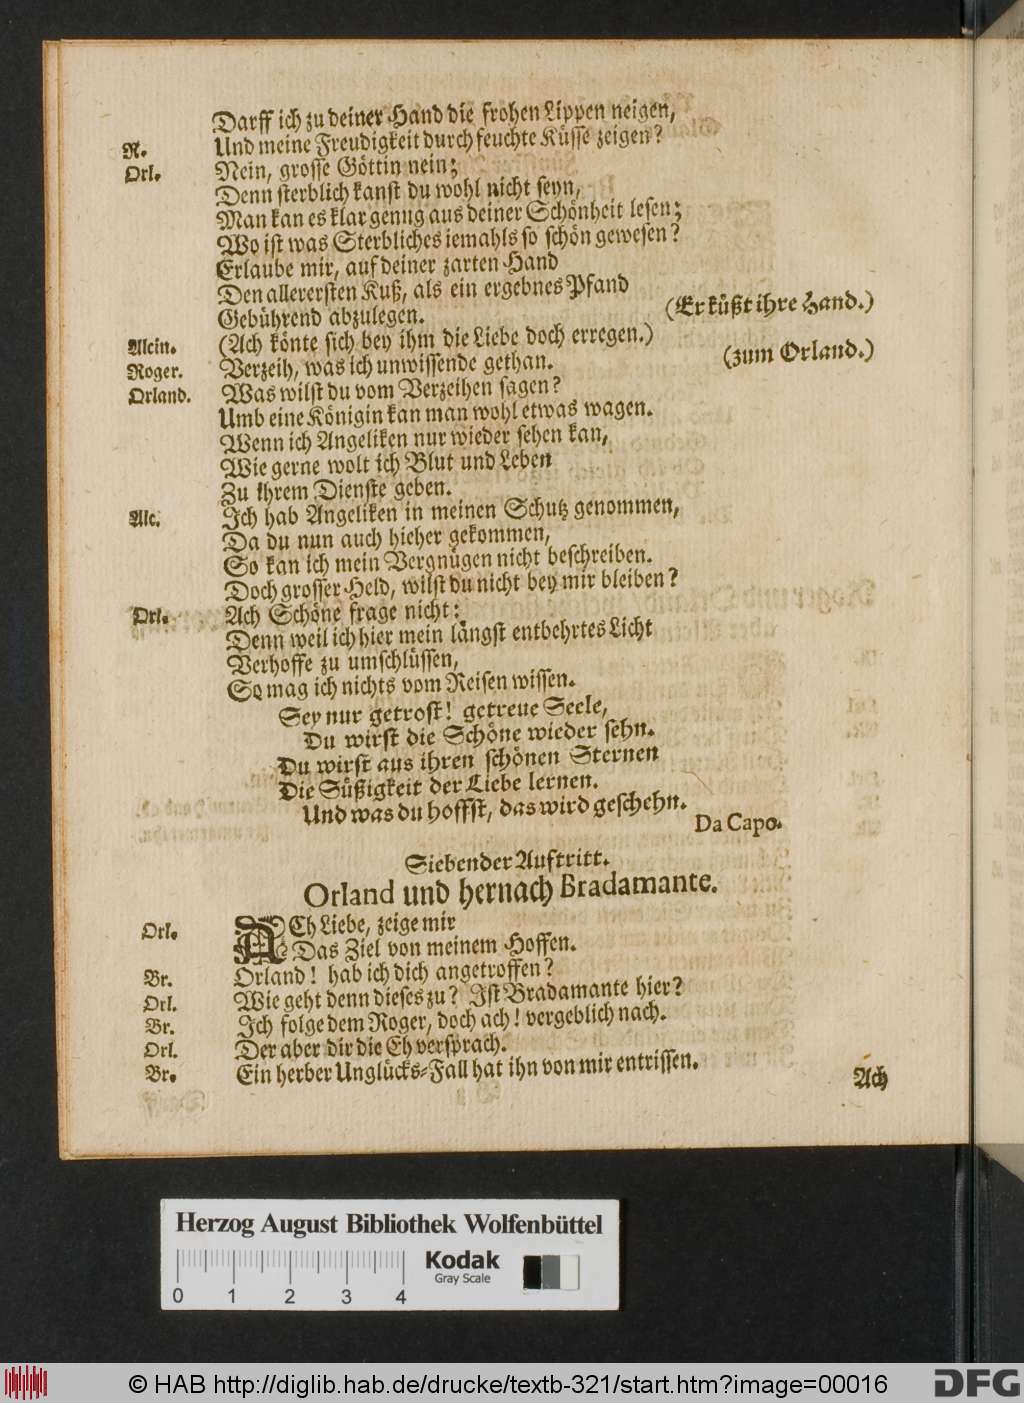 Darff ich zu deiner Hand die frohen Lippen neigen,
R. Und meine Freudigkeit durch feuchte Küsse zeigen?
Orl. Nein, grosse Göttin nein;
Denn sterblich kanst du wohl nicht seyn,
Man kan es klar genug aus deiner Schönheit lesen;
Wo ist was Sterbliches iemahls so schön gewesen?
Erlaube mir, auf deiner zarten Hand
Den allerersten Kuß, als ein ergebnes Pfand
Gebührend abzulegen. (Er küßt ihre Hand.)
Alcin. (Ach könte sich bey ihm die Liebe doch erregen.)
Roger. Verzeih, was ich unwissende gethan. (zum Orland.)
Orland. Was wilst du vom Verzeihen sagen?
Umb eine Königin kan man wohl etwas wagen.
Wenn ich Angeliken nur wieder sehen kan,
Wie gerne wolt ich Blut und Leben
Zu ihrem Dienste geben.
Alc. Ich hab Angeliken in meinen Schutz genommen,
Da du nun auch hieher gekommen,
So kan ich mein Vergnügen nicht beschreiben.
Doch grosser Held, wilst du nicht bey mir bleiben?
Orl. Ach Schöne frage nicht;
Denn weil ich hier mein längst entbehrtes Licht
Verhoffe zu umschlüssen,
So mag ich nichts vom Reisen wissen.
Sey nur getrost! getreue Seele,
Du wirst die Schöne wieder sehn.
Du wirst aus ihren schönen Sternen
Die Süßigkeit der Liebe lernen.
Und was du hoffst, das wird geschehn.
Da Capo.
Siebender Auftritt.
Orland und hernach Bradamante.
Orl. ACh Liebe, zeige mir
Das Ziel von meinem Hoffen.
Br. Orland! hab ich dich angetroffen?
Orl. Wie geht denn dieses zu? Ist Bradamante hier?
Br. Ich folge dem Roger, doch ach! vergeblich nach.
Orl. Der aber dir die Eh versprach.
Br. Ein herber Unglücks-Fall hat ihn von mir entrissen.
Ach
Herzog August Bibliothek Wolfenbüttel
Kodak
Gray Scale
0 1 2 3 4
© HAB http://diglib.hab.de/drucke/textb-321/start.htm?image=00016
DFG